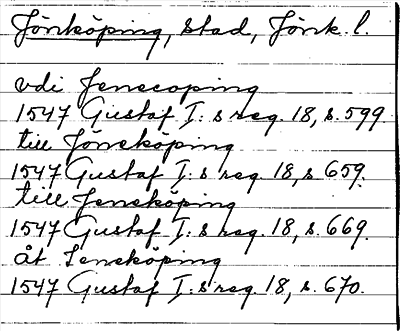 Jönköping, stad, Jönk. l.
vdi Jenecoping
1547 Gustaf I:s reg. 18, s. 599.
till Jöneköping
1547 Gustaf I:s reg. 18, s. 659.
till Jeneköping
1547 Gustaf I:s reg. 18, s. 669.
åt Ieneköping
1547 Gustaf I:s reg. 18, s. 670.